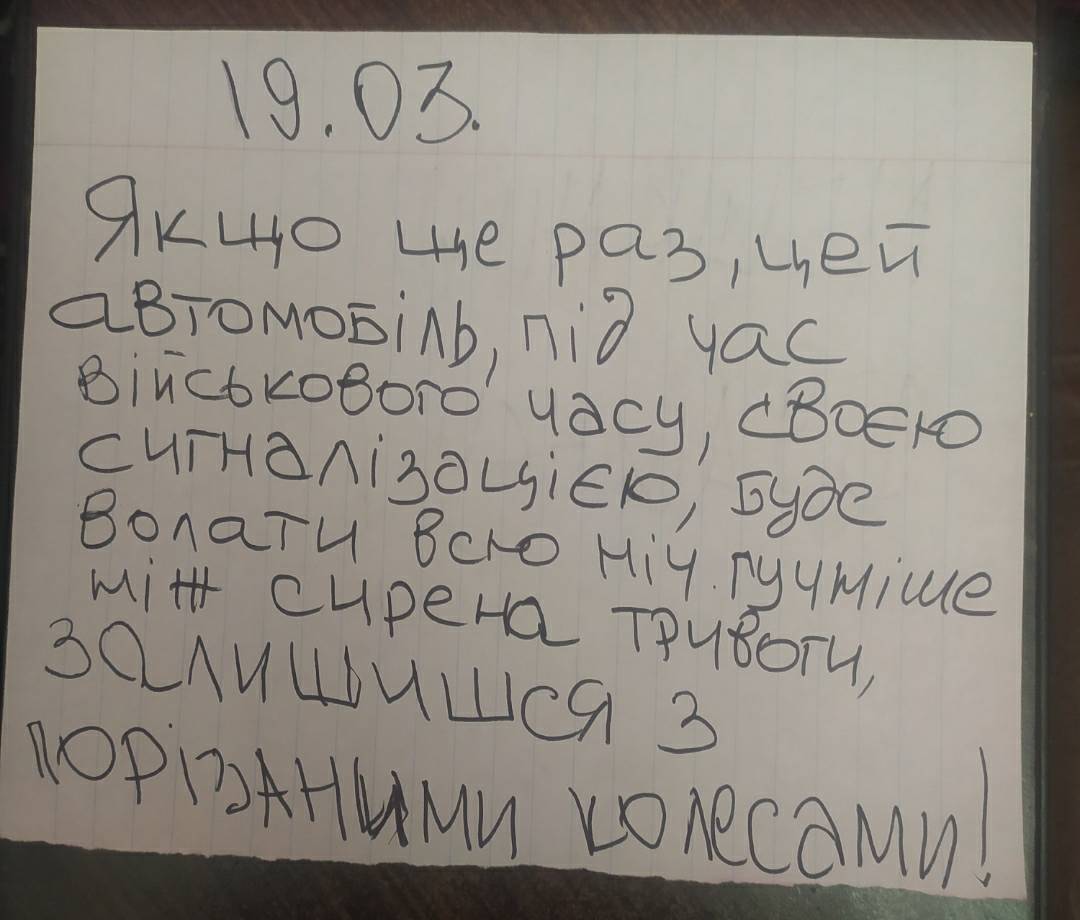 19.03.
Якщо ще раз, цей
автомобіль, під час
військового часу, своєю
сигналізацією, буде
волати всю ніч гучніше
ніж сирена тривоги,
залишишся з
порізаними колесами!